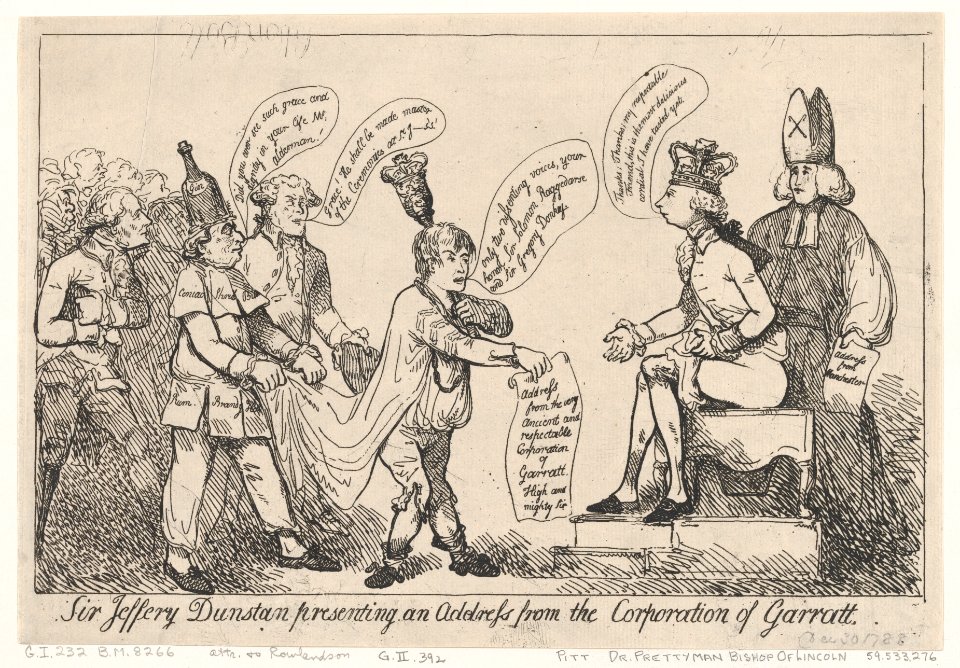 Did you ever see such grace and
dignity in your life Mr.
alderman!
Grace! He shall be made master
of the Ceremonies at St. J—s's!
Only two dissenting voices, your
honor, Sir Solomon Raggedarse
and Sir Gregory Donkey
Thanks! Thanks! my respectable
Friend, this is the most delicious
cordial I have tasted yet.
Gin
Coniac
Shrub
Rum.
Brandy
Address
from the very
Ancient and
respectable
Corporation
of
Garratt.
High and
mighty Sir
Address
from
Manchester
Sir Jeffery Dunstan presenting an Address from the Corporation of Garratt.
Dec 30 1788
G.I.232 B.M. 8266 attr. to Rowlandson G.II.392 PITT DR. PRETTYMAN BISHOP OF LINCOLN 59.533.276